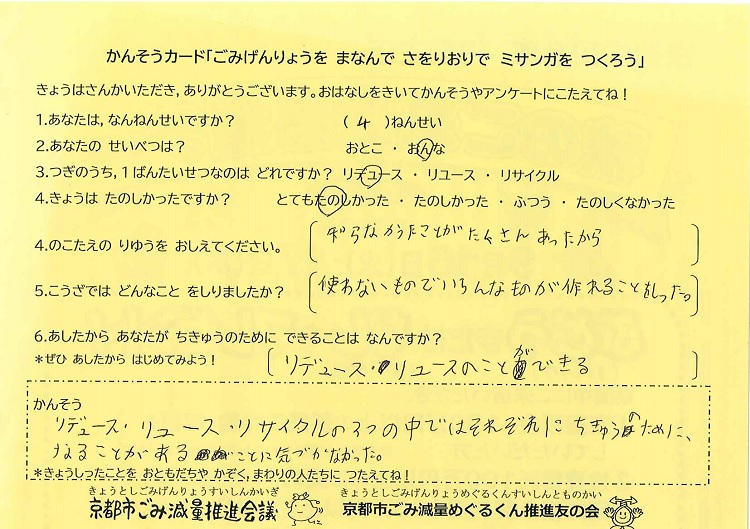 かんそうカード「ごみげんりょうを まなんで さをりおりで ミサンガを つくろう」
きょうはさんかいただき，ありがとうございます。おはなしをきいてかんそうやアンケートにこたえてね！
1.あなたは，なんねんせいですか？ （ 4 ）ねんせい
2.あなたの せいべつは？ おとこ ・ おんな
3.つぎのうち，1ばんたいせつなのは どれですか？ リデュース ・ リユース ・ リサイクル
4.きょうは たのしかったですか？ とてもたのしかった ・ たのしかった ・ ふつう ・ たのしくなかった
4.のこたえの りゆうを おしえてください。 知らなかったことがたくさんあったから
5.こうざでは どんなこと をしりましたか？ 使わないものでいろんなものが作れることもしった。
6.あしたから あなたが ちきゅうのために できることは なんですか？
*ぜひ あしたから はじめてみよう！ リデュース・リユースのことができる
かんそう
リデュース・リユース・リサイクルの3つの中ではそれぞれにちきゅうのために、
なることがあることに気づかなかった。
*きょうしったことを おともだちや かぞく，まわりの人たちに つたえてね！
きょうとしごみげんりょうすいしんかいぎ きょうとしごみげんりょうめぐるくんすいしんとものかい
京都市ごみ減量推進会議 京都市ごみ減量めぐるくん推進友の会